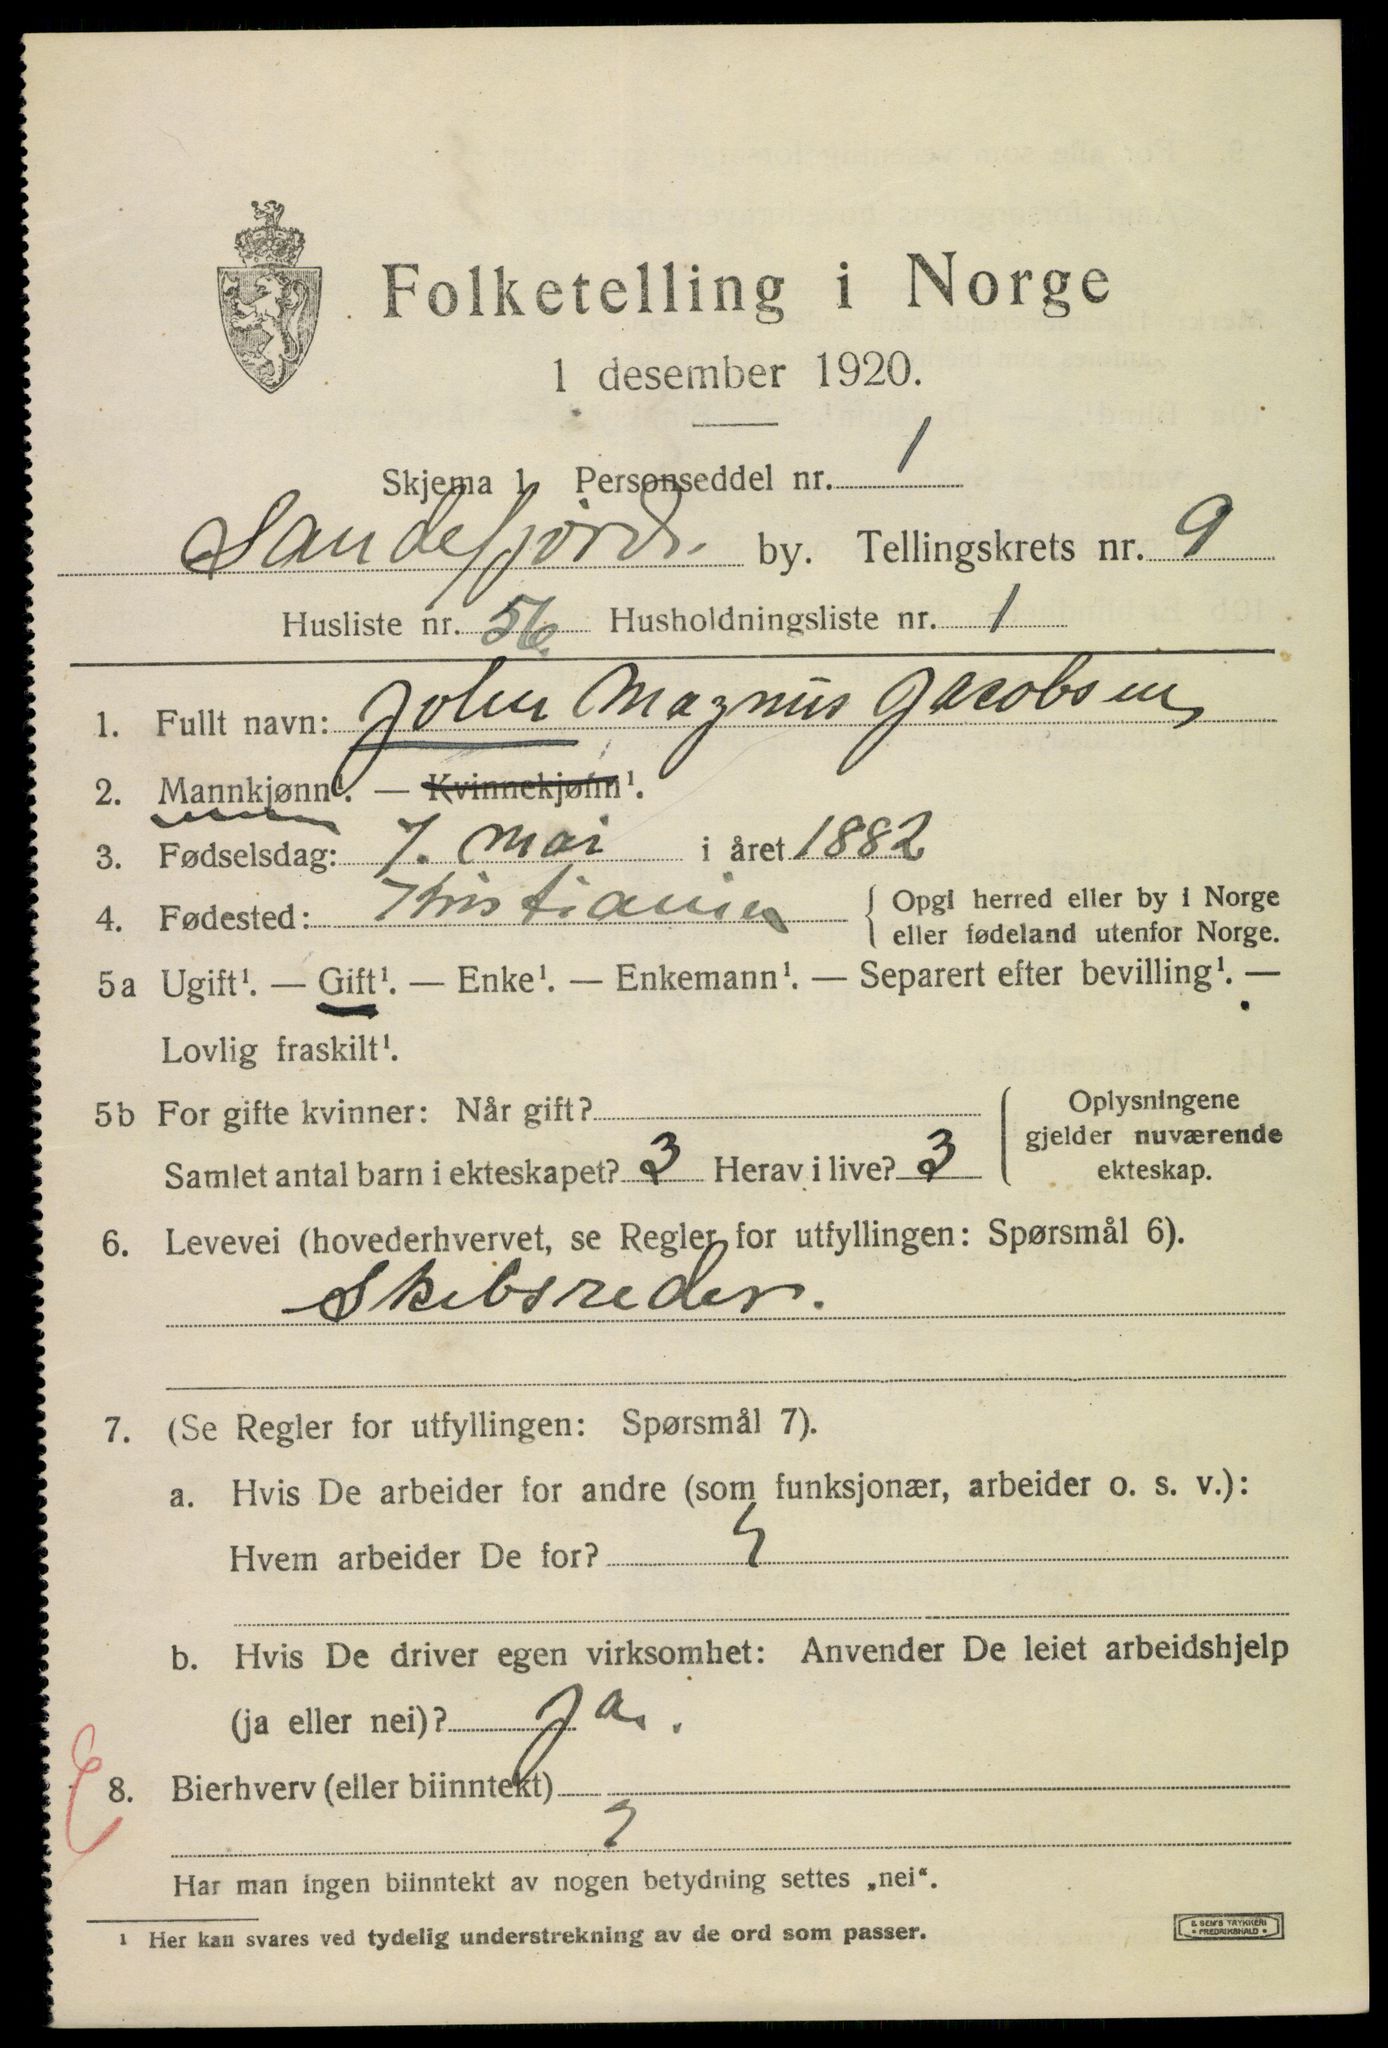 Folketelling i Norge
1 desember 1920.
Skjema 1 Personseddel nr. 1
Sandefjord by. Tellingskrets nr. 9
Husliste nr. 56. Husholdningsliste nr. 1
1. Fullt navn: John Magnus Jacobsen
2. Mannkjønn¹. — Kvinnekjønn¹.
3. Fødselsdag: 7. mai i året 1882
4. Fødested: Kristiania { Opgi herred eller by i Norge
eller fødeland utenfor Norge.
5a Ugift¹. — Gift¹. — Enke¹. — Enkemann¹. — Separert efter bevilling¹. —
Lovlig fraskilt¹.
5b For gifte kvinner: Når gift? { Oplysningene
gjelder nuværende
Samlet antal barn i ekteskapet? 3 Herav i live? 3 ekteskap.
6. Levevei (hovederhvervet, se Regler for utfyllingen: Spørsmål 6).
Skibsreder.
7. (Se Regler for utfyllingen: Spørsmål 7).
a. Hvis De arbeider for andre (som funksjonær, arbeider o. s. v.):
Hvem arbeider De for?
b. Hvis De driver egen virksomhet: Anvender De leiet arbeidshjelp
(ja eller nei)? Ja.
8. Bierhverv (eller biinntekt)
Har man ingen biinntekt av nogen betydning settes „nei“.
¹ Her kan svares ved tydelig understrekning av de ord som passer.
E SEM'S TRYKKERI
• FREDRIKSHALD •